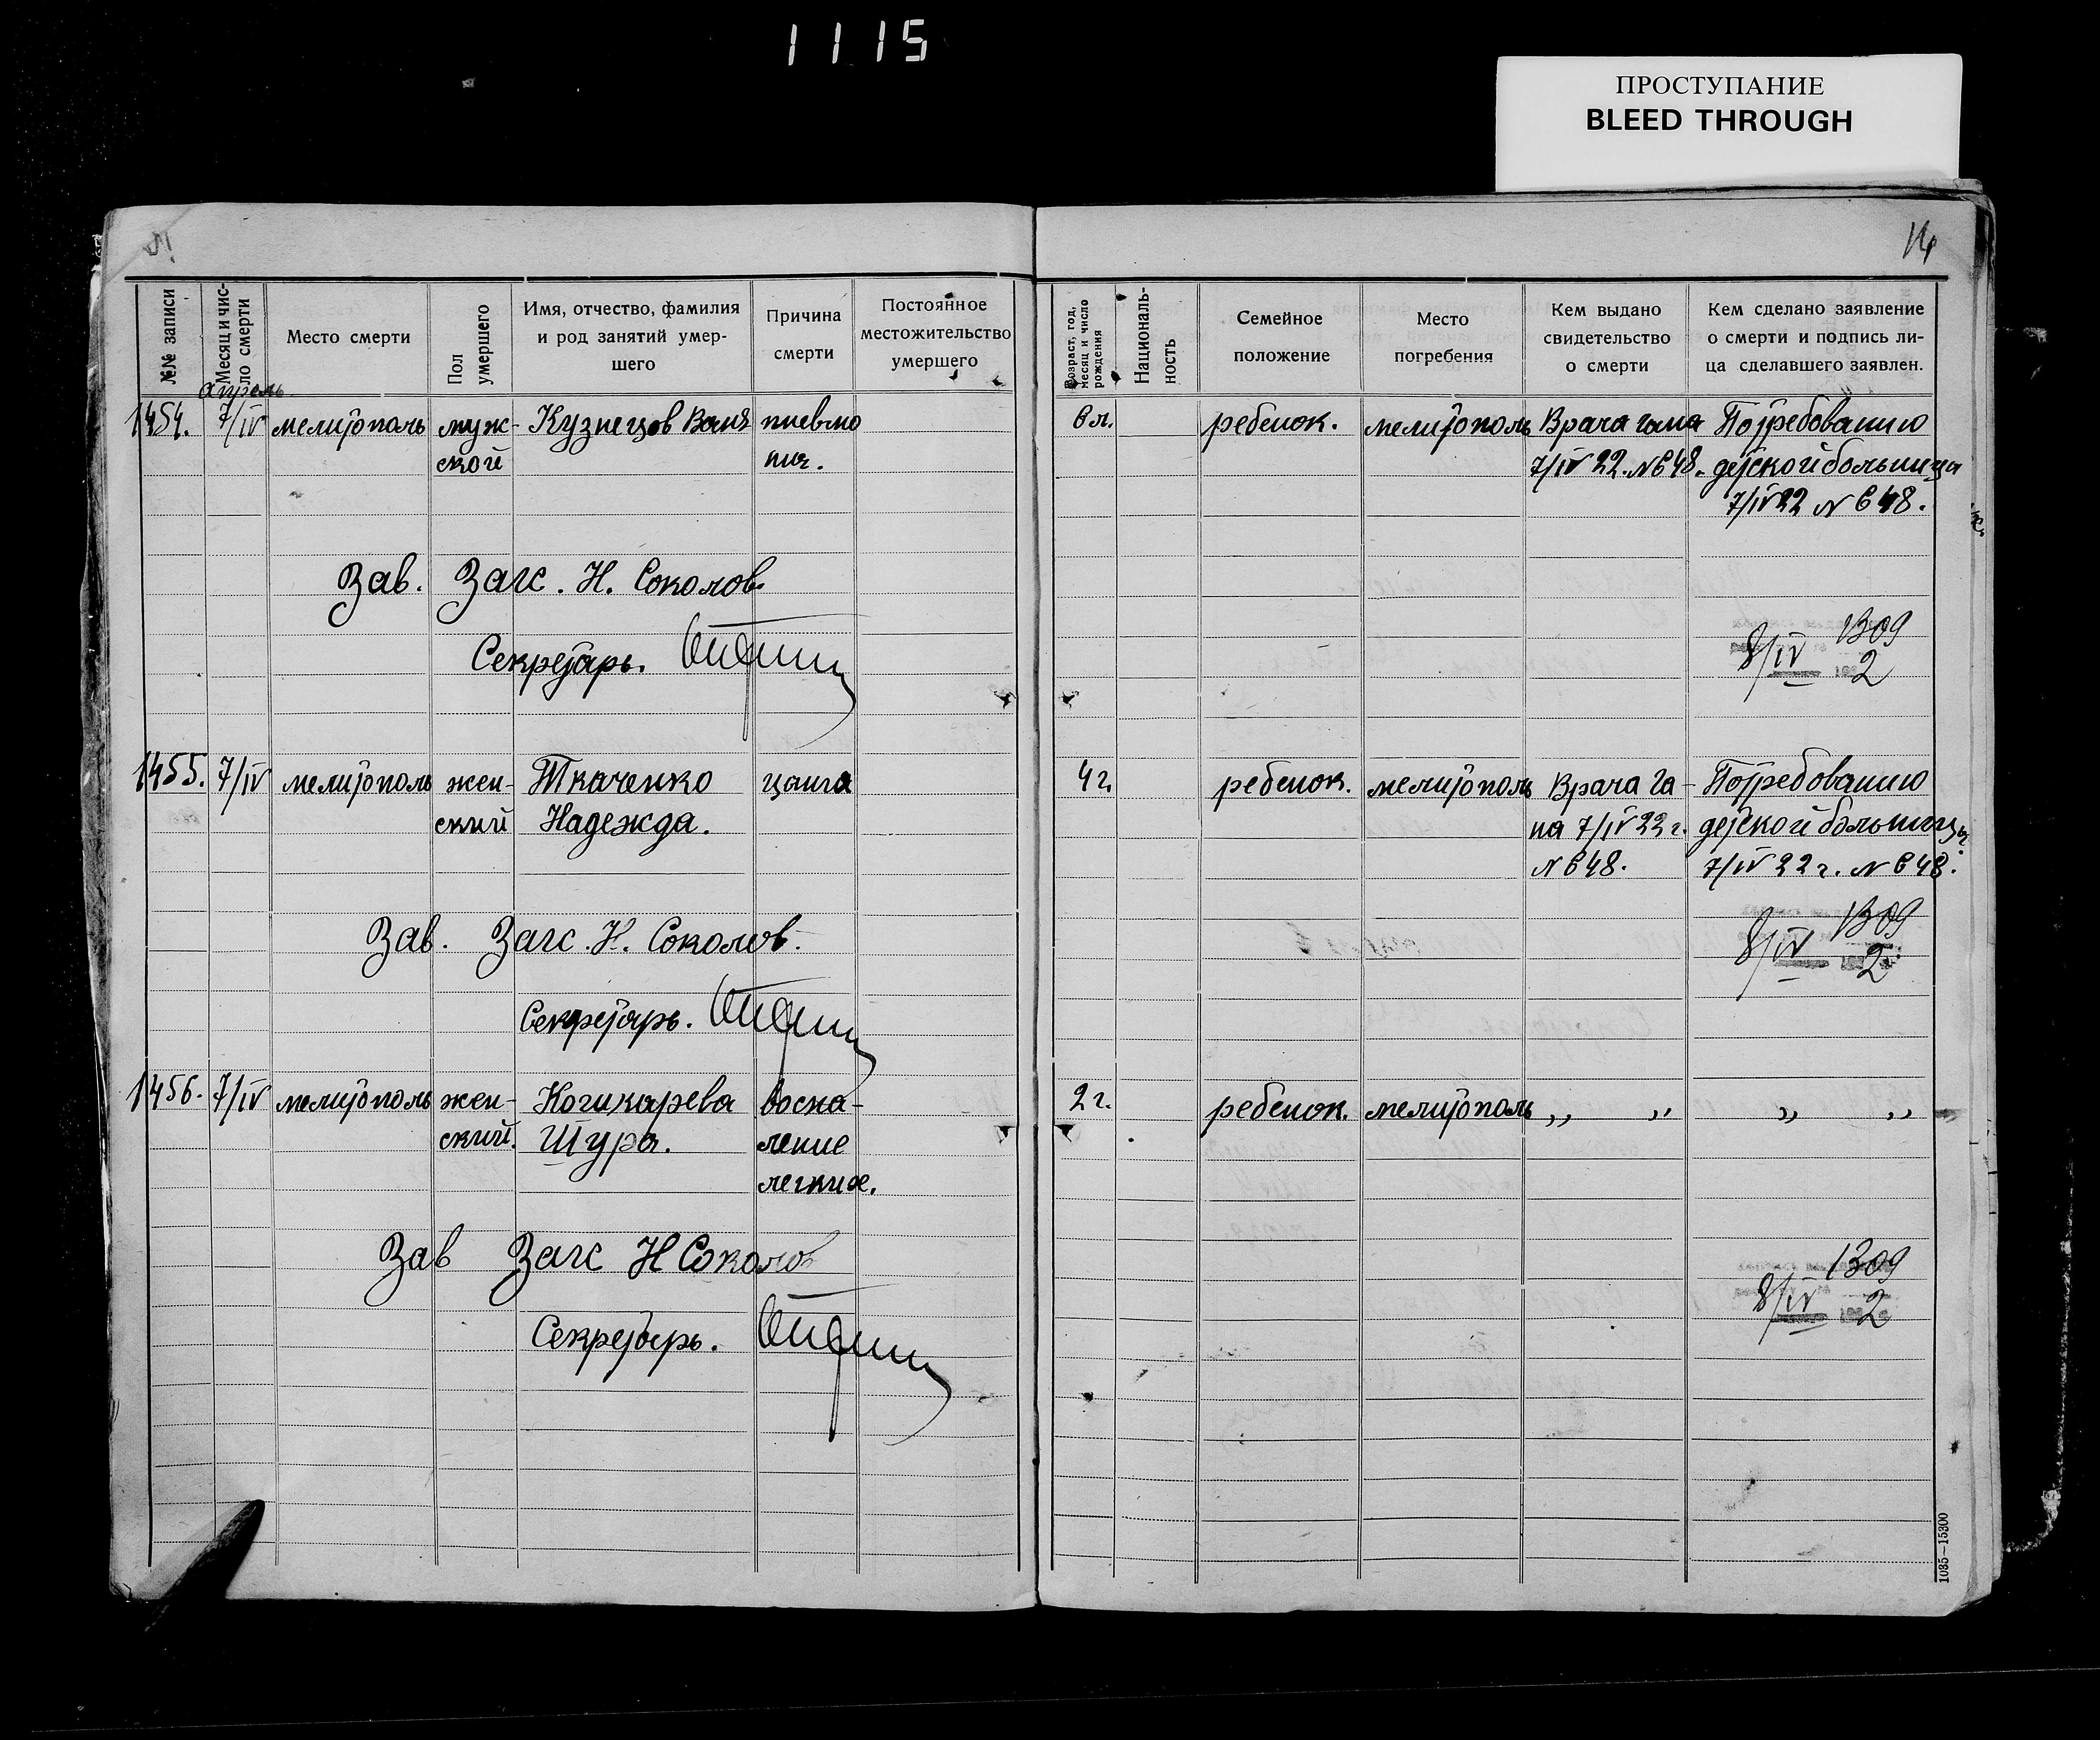 1115
ПРОСТУПАНИЕ
BLEED THROUGH
14
№№ записи
Месяц и чис-
ло смерти
Место смерти
Пол
умершего
Имя, отчество, фамилия
и род занятий умер-
шего
Причина
смерти
Постоянное
местожительство
умершего
Возраст, год,
месяц и число
рождения
Националь-
ность
Семейное
положение
Место
погребения
Кем выдано
свидетельство
о смерти
Кем сделано заявление
о смерти и подпись ли-
ца сделавшего заявлен.
апрель
1454. 7/IV мелитополь муж- Кузнецов Ваня пневмо 6 л. ребенок. мелитополь Врача Гана Потребованию
ской ния. 7/IV 22. N 648. детской больница
7/IV 22 N 648.
Зав. Загс. Н. Соколов.
Секретарь.
8/IV 1309
2
1455. 7/IV мелитополь жен- Ткаченко цынга 4 г. ребенок. мелитополь Врача Га- Потребованию
ский Надежда. на 7/IV 22 г. детской больницы
N 648. 7/IV 22 г. N 648.
Зав. Загс. Н. Соколов.
Секретарь.
8/IV 1309
2
1456. 7/IV мелитополь жен- воспа- 2 г. ребенок. мелитополь ,, ,, ,, ,,
ский. Шура. ление
легких.
Зав Загс Н Соколов
Секретарь.
8/IV 1309
2
1035—15300